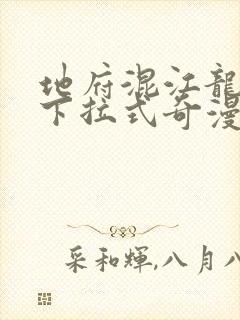 地府混江龍
下拉式奇漫
采和輝,八月八